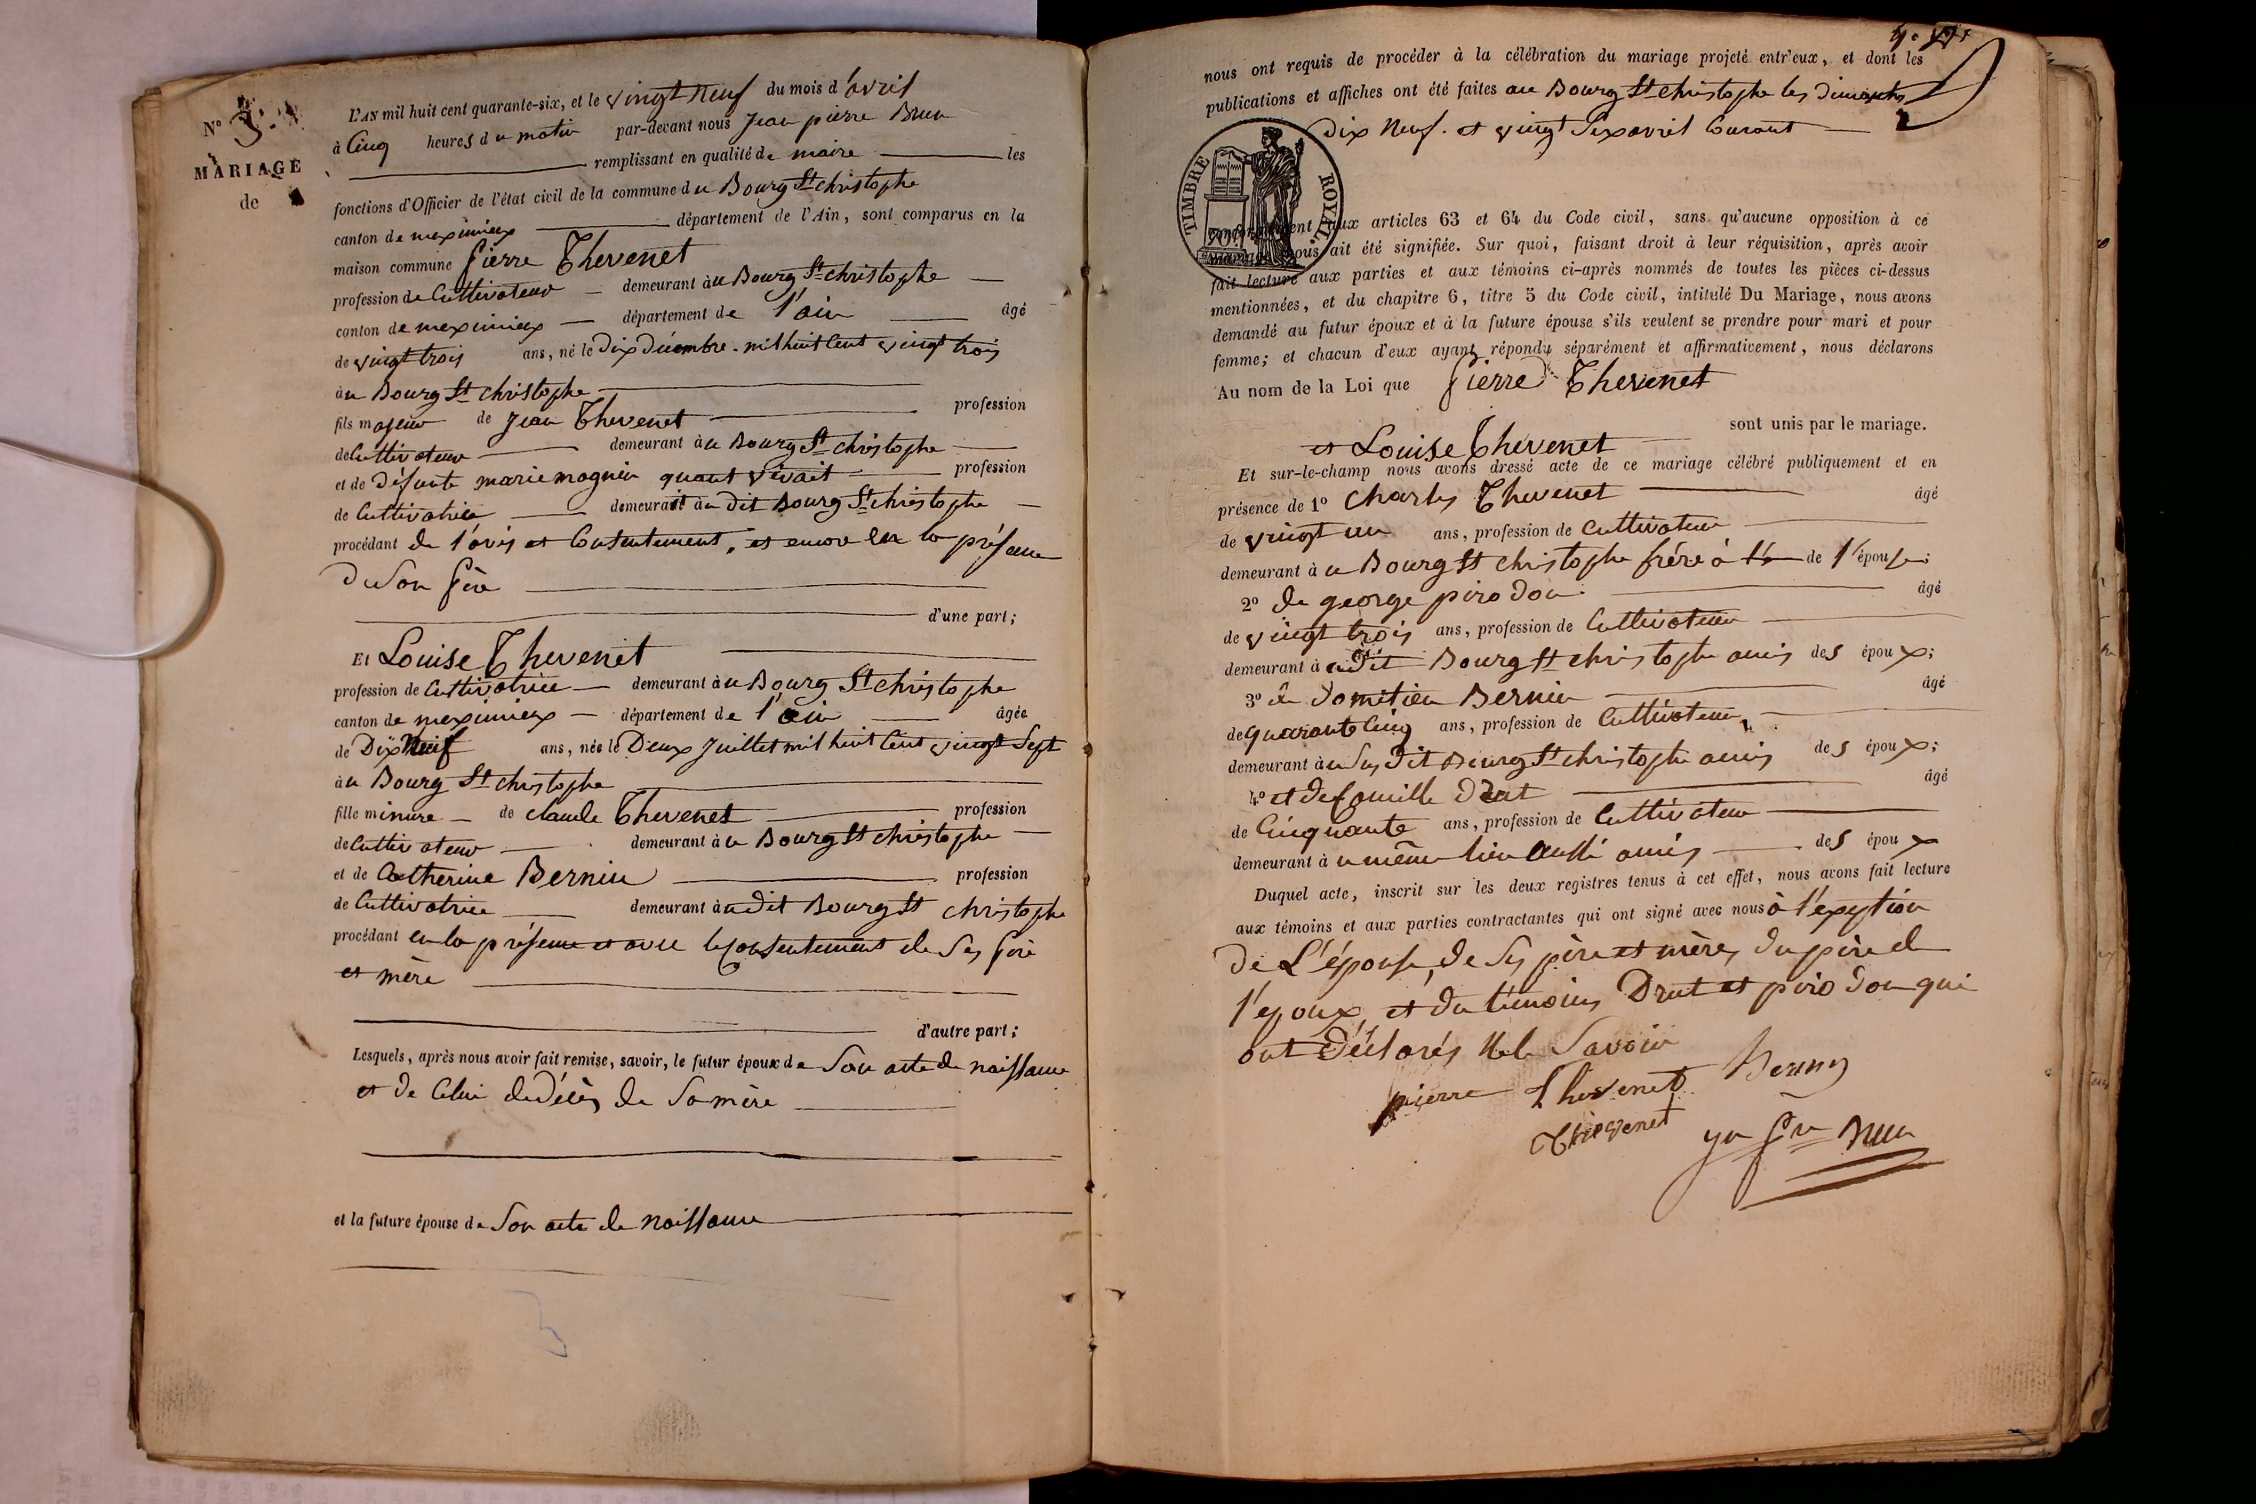 N° 3.
MARIAGE
de
L'AN mil huit cent quarante-six, et le vingt neuf du mois d'avril
à Cinq heures du matin par-devant nous Jean pierre Brun
remplissant en qualité de maire les
fonctions d'Officier de l'état civil de la commune du Bourg St christophe
canton de meximieux département de l'Ain, sont comparus en la
maison commune Pierre Thevenet
profession de Cultivateur demeurant au Bourg St christophe
canton de meximieux département de l'ain âgé
de vingt trois ans, né le Dix Décembre mil huit Cent vingt trois
au Bourg St christophe
fils majeur de Jean Thevenet profession
de Cultivateur demeurant au Bourg St christophe
et de défunte marie magnin quant vivait profession
de Cultivatrice demeurait au dit Bourg St christophe
procédant de l'avis et Consentement, et encore en la présence
de Son père
d'une part;
Et Louise Thevenet
profession de Cultivatrice demeurant au Bourg St christophe
canton de meximieux département de l'ain âgée
de Dix Neuf ans, née le Deux Juillet mil huit Cent vingt Sept
au Bourg St christophe
fille mineure de claude Thevenet profession
de Cultivateur demeurant au Bourg St christophe
et de Catherine Bernin profession
de Cultivatrice demeurant au dit Bourg St christophe
procédant en la présence et avec le Consentement de Ses père
et mère
d'autre part;
Lesquels, après nous avoir fait remise, savoir, le futur époux de Son acte de naissance
et de Celui de décès de Sa mère
et la future épouse de Son acte de naissance
3
nous ont requis de procéder à la célébration du mariage projeté entr'eux, et dont les
publications et affiches ont été faites au Bourg St christophe les dimanches
Dix Neuf et vingt Six avril Courant
TIMBRE ROYAL
conformément aux articles 63 et 64 du Code civil, sans qu'aucune opposition à ce
mariage nous ait été signifiée. Sur quoi, faisant droit à leur réquisition, après avoir
fait lecture aux parties et aux témoins ci-après nommés de toutes les pièces ci-dessus
mentionnées, et du chapitre 6, titre 5 du Code civil, intitulé Du Mariage, nous avons
demandé au futur époux et à la future épouse s'ils veulent se prendre pour mari et pour
femme; et chacun d'eux ayant répondu séparément et affirmativement, nous déclarons
Au nom de la Loi que Pierre Thevenet
et Louise Thevenet sont unis par le mariage.
Et sur-le-champ nous avons dressé acte de ce mariage célébré publiquement et en
présence de 1° Charles Thevenet âgé
de vingt un ans, profession de Cultivateur
demeurant au Bourg St christophe frère à de l'épouse;
2° de george pirodon âgé
de vingt trois ans, profession de Cultivateur
demeurant audit Bourg St christophe amis des époux;
3° de Domitien Bernin âgé
de quarante Cinq ans, profession de Cultivateur
demeurant au Susdit Bourg St christophe amis des époux;
4° et de Camille Drut âgé
de Cinquante ans, profession de Cultivateur
demeurant au même lieu aussi amis des époux
Duquel acte, inscrit sur les deux registres tenus à cet effet, nous avons fait lecture
aux témoins et aux parties contractantes qui ont signé avec nous à l'exeption
de L'épouse, de Ses père et mère, du père de
l'époux, et du témoins Drut et pirodon qui
ont Déclarés Ne le Savoir
pierre thevenet Bernin
Thevenet